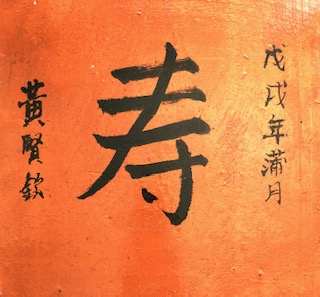 戊戌年蒲月
寿
黃賢欽